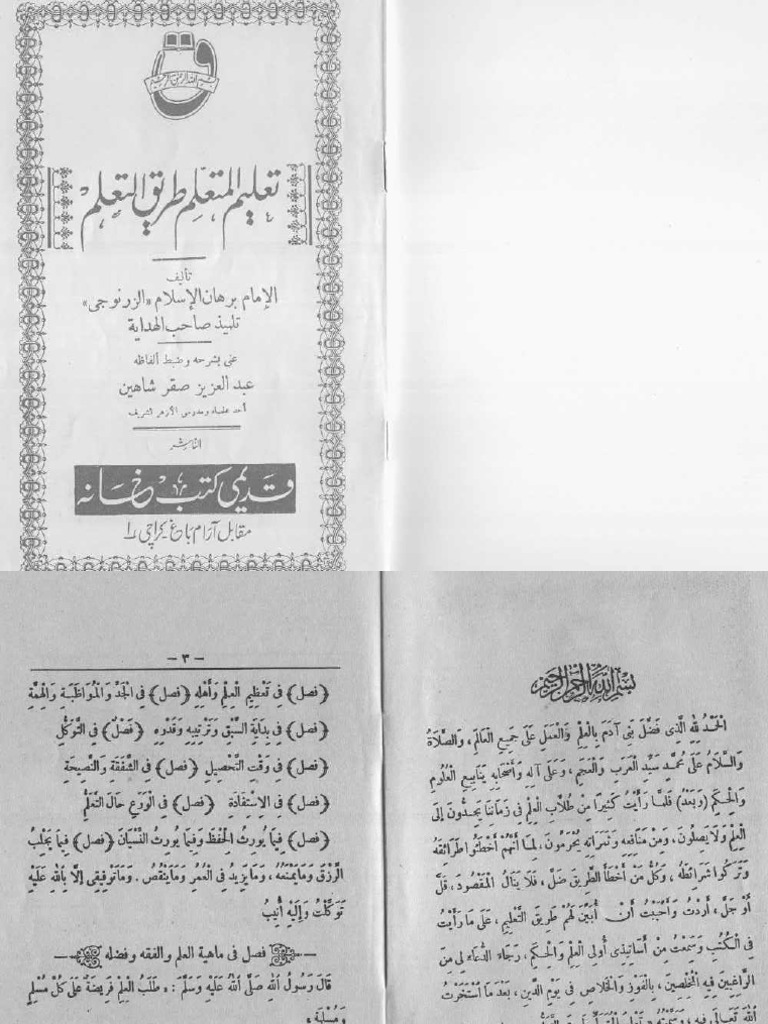 تعليم المتعلم طريق التعلم
تأليف
الإمام برهان الإسلام «الزرنوجى»
تلميذ صاحب الهداية
عنى بشرحه وضبط ألفاظه
عبد العزيز صقر شاهين
أحد علماء ومدرسى الأزهر الشريف
الناشر
قديمى كتب خانه
مقابل آرام باغ كراچی ۱
بِسْمِ اللهِ الرَّحْمٰنِ الرَّحِيمِ
الْحَمْدُ لِلهِ الَّذِى فَضَّلَ بَنِى آدَمَ بِالْعِلْمِ وَالْعَمَلِ عَلَى جَمِيعِ الْعَالَمِ، وَالصَّلَاةُ
وَالسَّلَامُ عَلَى مُحَمَّدٍ سَيِّدِ الْعَرَبِ وَالْعَجَمِ، وَعَلَى آلِهِ وَأَصْحَابِهِ يَنَابِيعِ الْعُلُومِ
وَالْحِكَمِ (وَبَعْدُ) فَلَمَّا رَأَيْتُ كَثِيرًا مِنْ طُلَّابِ الْعِلْمِ فِى زَمَانِنَا يَجِدُّونَ إِلَى
الْعِلْمِ وَلَا يَصِلُونَ، وَمَنْ مَنَافِعِهِ وَثَمَرَاتِهِ يُحْرَمُونَ، لِمَا أَنَّهُمْ أَخْطَئُوا طَرَائِقَهُ
وَتَرَكُوا شَرَائِطَهُ، وَكُلُّ مَنْ أَخْطَأَ الطَّرِيقَ ضَلَّ، فَلَا يَنَالُ الْمَقْصُودَ، قَلَّ
أَوْ جَلَّ، أَرَدْتُ وَأَحْبَبْتُ أَنْ أُبَيِّنَ لَهُمْ طَرِيقَ التَّعْلِيمِ، عَلَى مَا رَأَيْتُ
فِى الْكُتُبِ وَسَمِعْتُ مِنْ أَسَاتِذِى أُولِى الْعِلْمِ وَالْحِكَمِ، رَجَاءَ الدُّعَاءِ لِى مِنَ
الرَّاغِبِينَ فِيهِ الْمُخْلِصِينَ، بِالْفَوْزِ وَالْخَلَاصِ فِى يَوْمِ الدِّينِ، بَعْدَ مَا اسْتَخَرْتُ
اللهَ تَعَالَى فِيهِ، وَسَمَّيْتُهُ
- ٣ -
(فصل) فِى تَعْظِيمِ الْعِلْمِ وَأَهْلِهِ (فصل) فِى الْجِدِّ وَالْمُوَاظَبَةِ وَالْهِمَّةِ
(فصل) فِى بِدَايَةِ السَّبْقِ وَتَرْتِيبِهِ وَقَدْرِهِ (فَصْلٌ) فِى التَّوَكُّلِ
(فصل) فِى وَقْتِ التَّحْصِيلِ (فصل) فِى الشَّفَقَةِ وَالنَّصِيحَةِ
(فصل) فِى الِاسْتِفَادَةِ (فصل) فِى الْوَرَعِ حَالَ التَّعَلُّمِ
(فصل) فِيمَا يُورِثُ الْحِفْظَ وَفِيمَا يُورِثُ النِّسْيَانَ (فصل) فِيمَا يَجْلِبُ
الرِّزْقَ وَمَا يَمْنَعُهُ، وَمَا يَزِيدُ فِى الْعُمُرِ وَمَا يَنْقُصُ. وَمَا تَوْفِيقِى إِلَّا بِاللهِ عَلَيْهِ
تَوَكَّلْتُ وَإِلَيْهِ أُنِيبُ
فصل فى ماهية العلم والفقه وفضله
قَالَ رَسُولُ اللهِ صَلَّى اللهُ عَلَيْهِ وَسَلَّمَ: «طَلَبُ الْعِلْمِ فَرِيضَةٌ عَلَى كُلِّ مُسْلِمٍ
وَمُسْلِمَةٍ»